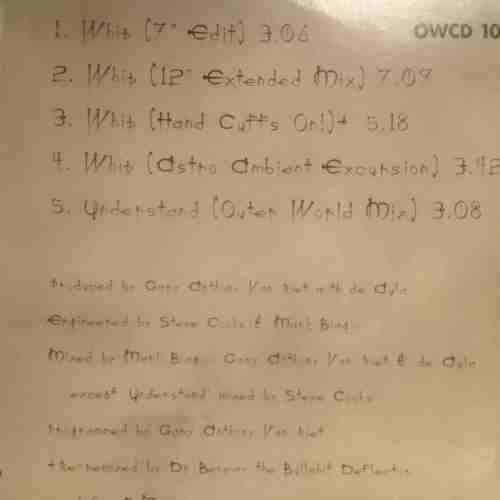 1. Whip (7" Edit) 3.06
OWCD 10
2. Whip (12" Extended Mix) 7.09
3. Whip (Hand Cuffs On!)+ 5.18
4. Whip (Astro Ambient Excursion) 3.42
5. Understand (Outer World Mix) 3.08
Produced by Gary Arthur Van with de
Engineered by Steve & Mark
Mixed by Mark Gary Arthur Van & de
except 'Understand' mixed by Steve
Programmed by Gary Arthur Van
+ Re-remixed by Dr the Bullshit